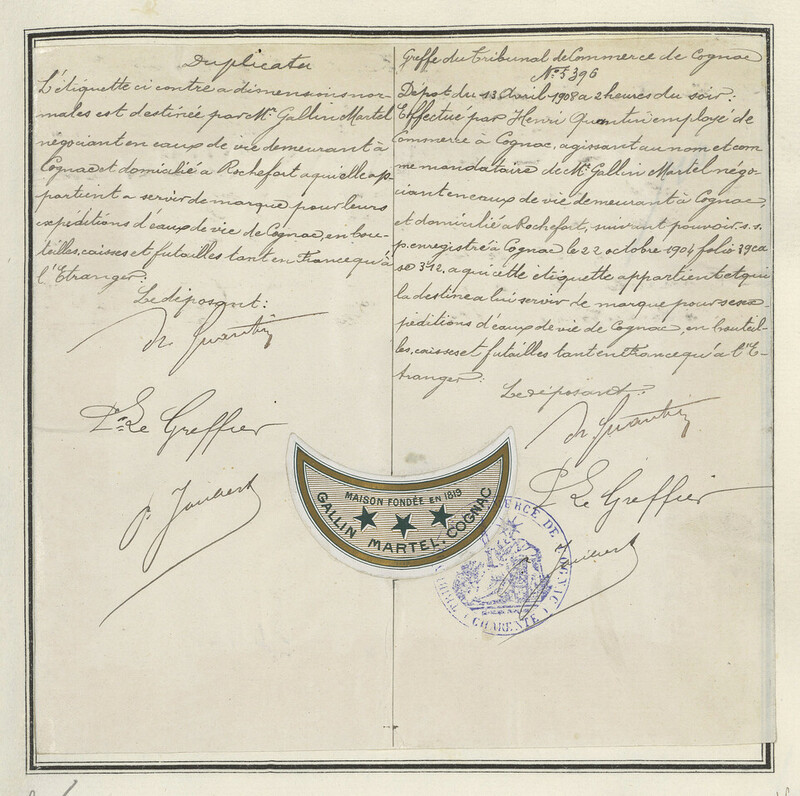 Duplicata
L'étiquette ci contre a dismensions nor-
males est destinée par Mr. Gallin Martel
négociant en eaux de vie demeurant à
Cognac et domicilié a Rochefort a qui elle ap-
partient a servir de marque pour leurs
expéditions d'eaux de vie de Cognac, en bou-
teilles, caisses et futailles tant en France qu'à
l'Etranger.
Le déposant:
Le Greffier
Greffe du Tribunal de Commerce de Cognac
N° 5396
Dépot du 13 Avril 1908 a 2 heures du soir:
Effectué par Henri Quantin employé de
Commerce à Cognac, agissant au nom et com-
me mandataire de Mr. Gallin Martel négo-
ciant en eaux de vie demeurant à Cognac,
et domicilié a Rochefort, suivant pouvoir s.s.
p. enregistré à Cognac le 22 octobre 1904 folio 39 ca-
se 312, a qui cette etiquette appartient et qui
la destine a lui servir de marque pour ses ex-
péditions d'eaux de vie de Cognac, en bouteil-
les, caisses et futailles tant en France qu'a l'E-
tranger:
Le déposant:
Le Greffier
MAISON FONDÉE EN 1819
GALLIN MARTEL. COGNAC
COMMERCE DE COGNAC
CHARENTE